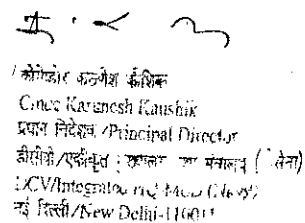 कोमोडोर कमनेश कौशिक
Cmde Kamnesh Kaushik
प्रधान निदेशक /Principal Director
डीसीवी/एकीकृत मुख्यालय रक्षा मंत्रालय (नौसेना)
DCV/Integrated HQ MoD (Navy)
नई दिल्ली/New Delhi-110011